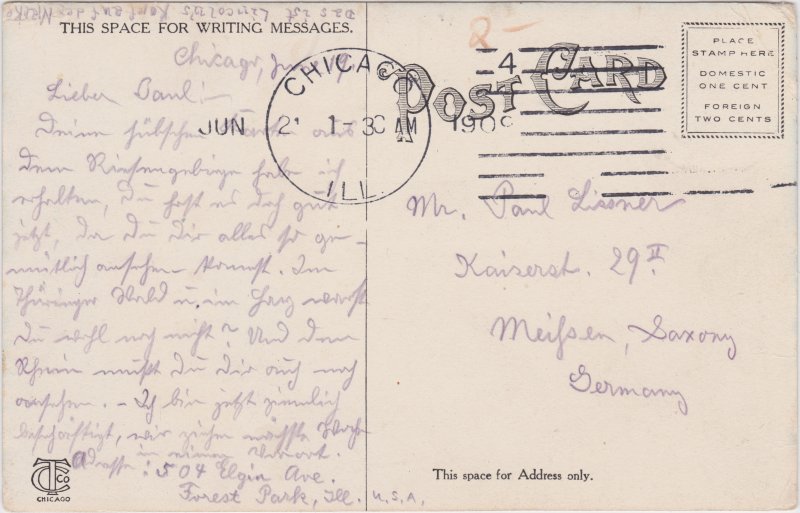 Das ist Lincoln's
THIS SPACE FOR WRITING MESSAGES.
Chicago, June 19.
Lieber Paul!—
Deine hübschen Karte aus
dem Riesengebirge habe ich
erhalten, Du hast es doch gut
jetzt, da Du Dir alles so ge-
mütlich ansehen kannst. Im
Thüringer Wald u. im Harz warst
Du wohl noch nicht? Und den
Rhein mußt Du Dir auch noch
ansehen. – Ich bin jetzt ziemlich
beschäftigt, wir ziehen nächste Woche
in einen Vorort.
Adresse: 504 Elgin Ave.
Forest Park, Ill. U.S.A.
CTCO
CHICAGO
2-
CHICAGO
JUN 21 1-30 AM 1909
ILL.
4
POST CARD
PLACE
STAMP HERE
DOMESTIC
ONE CENT
FOREIGN
TWO CENTS
Mr. Paul Lissner
Kaiserst. 29 II
Meißen, Saxony
Germany
This space for Address only.